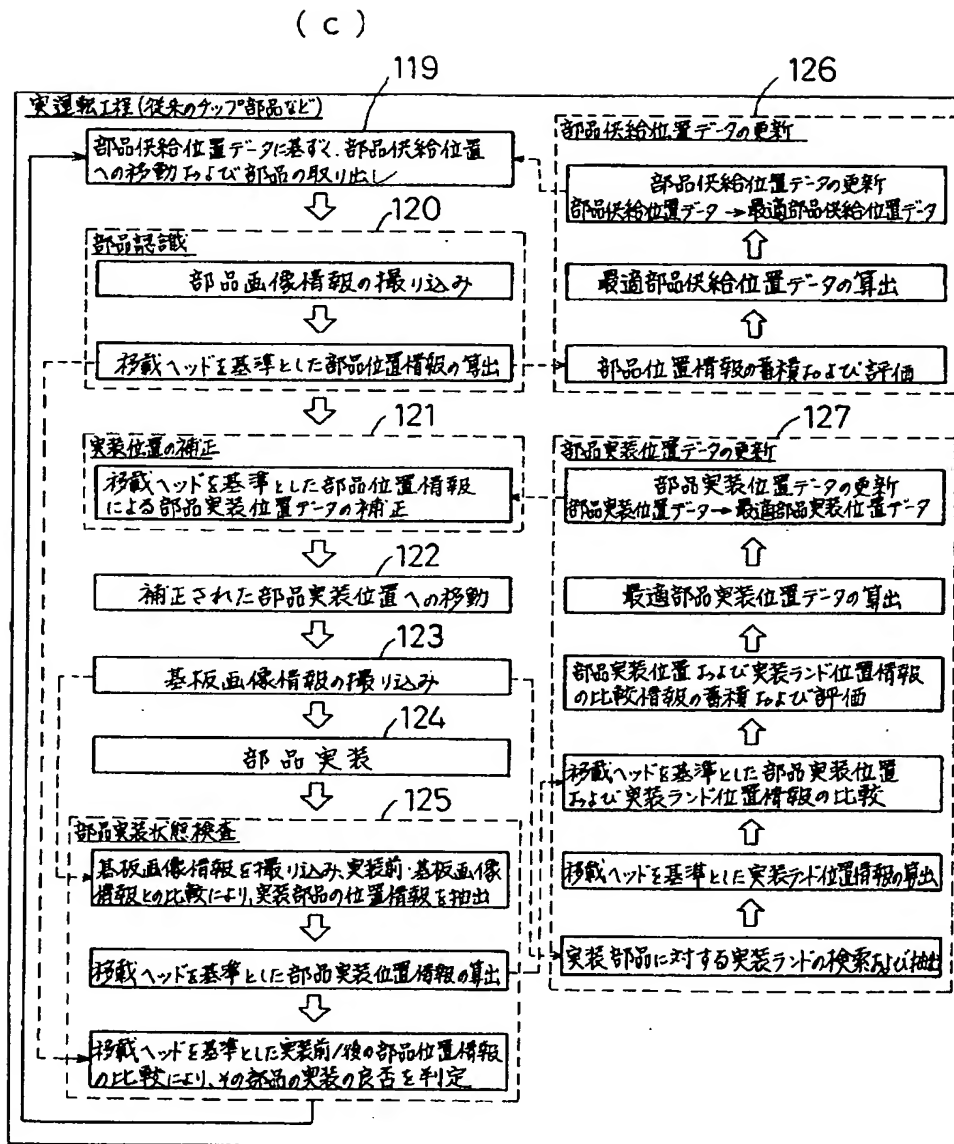 (c)
119
126
実運転工程(従来のチップ部品など)
部品供給位置データに基ずく、部品供給位置
への移動および部品の取り出し
120
部品認識
部品画像情報の撮り込み
移載ヘッドを基準とした部品位置情報の算出
121
実装位置の補正
移載ヘッドを基準とした部品位置情報
による部品実装位置データの補正
122
補正された部品実装位置への移動
123
基板画像情報の撮り込み
124
部品実装
125
部品実装状態検査
基板画像情報を撮り込み、実装前・基板画像
情報との比較により、実装部品の位置情報を抽出
移載ヘッドを基準とした部品実装位置情報の算出
移載ヘッドを基準とした実装前/後の部品位置情報
の比較により、その部品の実装の良否を判定
部品供給位置データの更新
部品供給位置データの更新
部品供給位置データ→最適部品供給位置データ
最適部品供給位置データの算出
部品位置情報の蓄積および評価
127
部品実装位置データの更新
部品実装位置データの更新
部品実装位置データ→最適部品実装位置データ
最適部品実装位置データの算出
部品実装位置および実装ランド位置情報
の比較情報の蓄積および評価
移載ヘッドを基準とした部品実装位置
および実装ランド位置情報の比較
移載ヘッドを基準とした実装ランド位置情報の算出
実装部品に対する実装ランドの検索および抽出